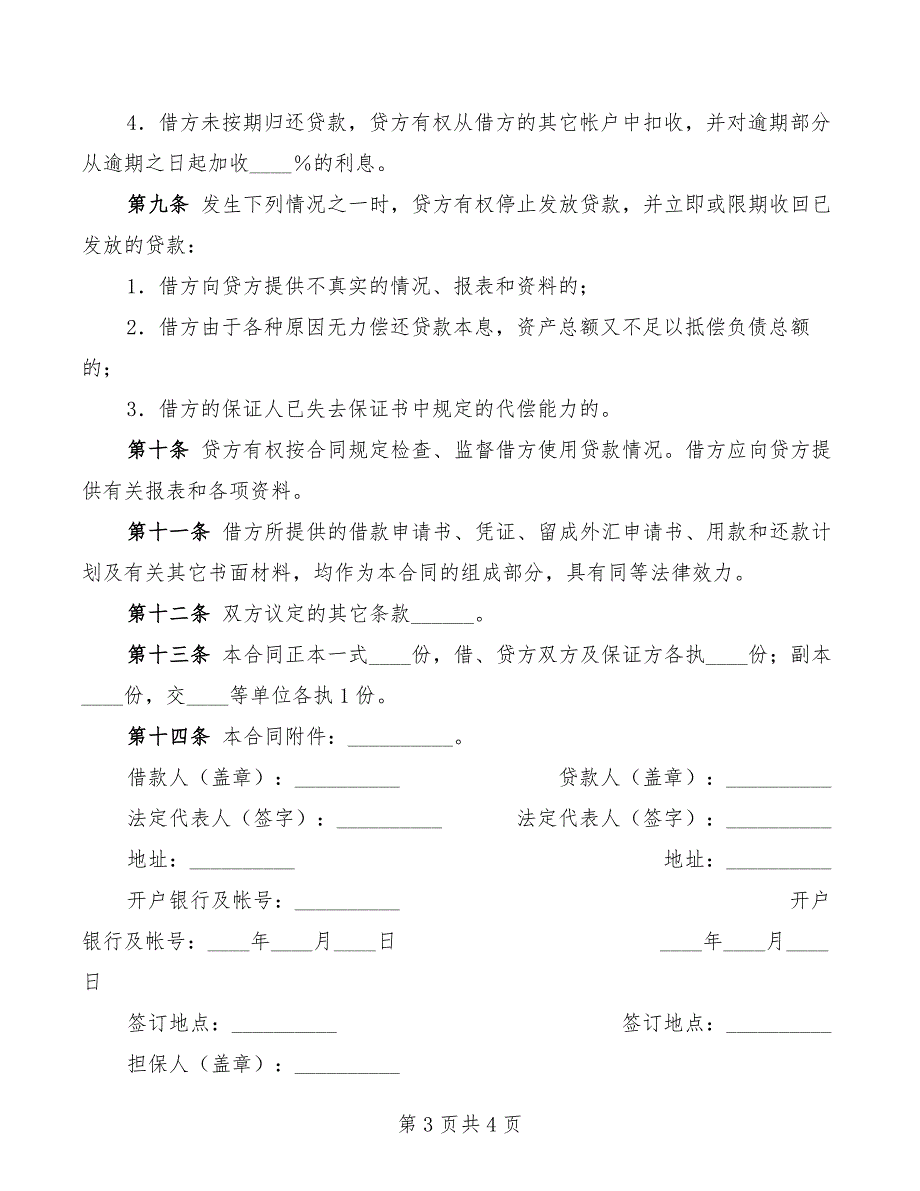 4．借方未按期归还贷款，贷方有权从借方的其它帐户中扣收，并对逾期部分
从逾期之日起加收____％的利息。
第九条 发生下列情况之一时，贷方有权停止发放贷款，并立即或限期收回已
发放的贷款：
1．借方向贷方提供不真实的情况、报表和资料的；
2．借方由于各种原因无力偿还贷款本息，资产总额又不足以抵偿负债总额
的；
3．借方的保证人已失去保证书中规定的代偿能力的。
第十条 贷方有权按合同规定检查、监督借方使用贷款情况。借方应向贷方提
供有关报表和各项资料。
第十一条 借方所提供的借款申请书、凭证、留成外汇申请书、用款和还款计
划及有关其它书面材料，均作为本合同的组成部分，具有同等法律效力。
第十二条 双方议定的其它条款______。
第十三条 本合同正本一式____份，借、贷方双方及保证方各执____份；副本
____份，交____等单位各执 1 份。
第十四条 本合同附件：__________。
借款人（盖章）：__________ 贷款人（盖章）：__________
法定代表人（签字）：__________ 法定代表人（签字）：__________
地址：__________ 地址：__________
开户银行及帐号：__________ 开户
银行及帐号：____年____月____日 ____年____月____
日
签订地点：__________ 签订地点：__________
担保人（盖章）：__________
第 3 页共 4 页